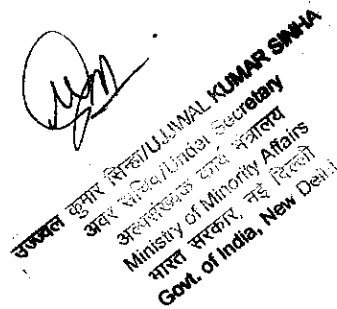 उज्जवल कुमार सिन्हा/UJJWAL KUMAR SINHA
अवर सचिव/Under Secretary
अल्पसंख्यक कार्य मंत्रालय
Ministry of Minority Affairs
भारत सरकार, नई दिल्ली
Govt. of India, New Delhi